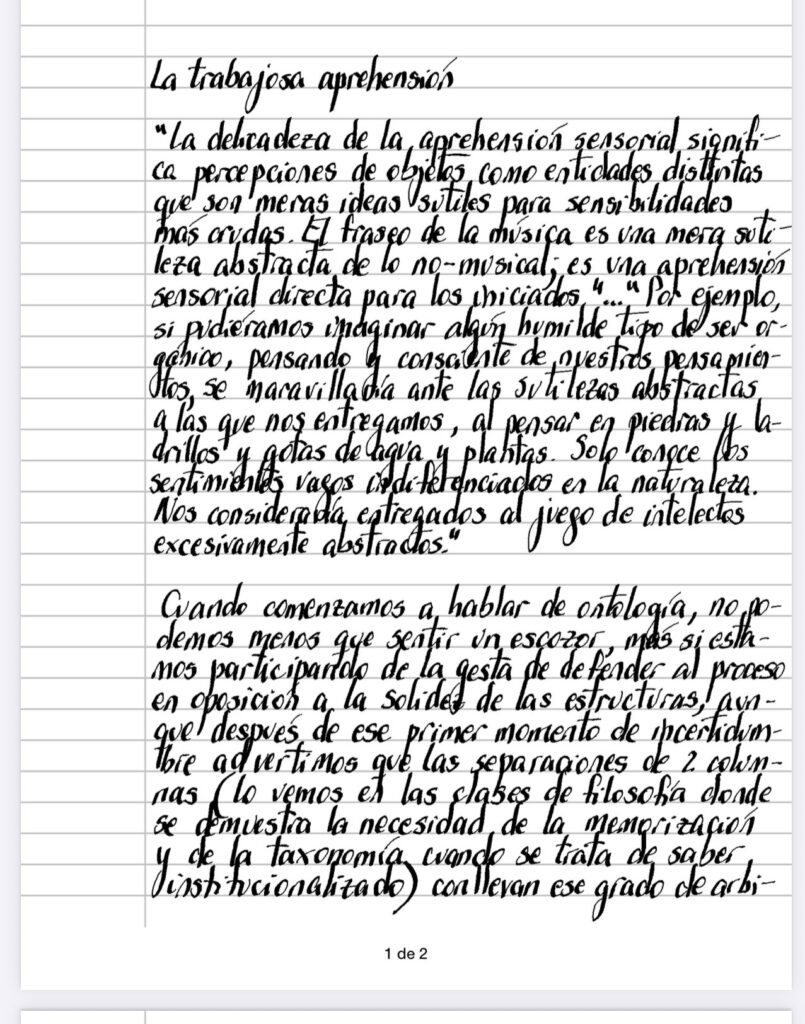 La trabajosa aprehensión
"La delicadeza de la aprehensión sensorial signifi-
ca percepciones de objetos como entidades distintas
que son meras ideas sutiles para sensibilidades
más crudas. El fraseo de la música es una mera suti-
leza abstracta de lo no-musical; es una aprehensión
sensorial directa para los iniciados "..." Por ejemplo,
si pudiéramos imaginar algún humilde tipo de ser or-
gánico, pensando y consciente de nuestros pensamien-
tos, se maravillaría ante las sutilezas abstractas
a las que nos entregamos, al pensar en piedras y la-
drillos y gotas de agua y plantas. Solo conoce los
sentimientos vagos indiferenciados en la naturaleza.
Nos consideraría entregados al juego de intelectos
excesivamente abstractos."
Cuando comenzamos a hablar de ontología, no po-
demos menos que sentir un escozor, más si esta-
mos participando de la gesta de defender al proceso
en oposición a la solidez de las estructuras, aun-
que después de ese primer momento de incertidum-
bre advertimos que las separaciones de 2 colum-
nas (lo vemos en las clases de filosofía donde
se demuestra la necesidad de la memorización
y de la taxonomía cuando se trata de saber
institucionalizado) conllevan ese grado de arbi-
1 de 2